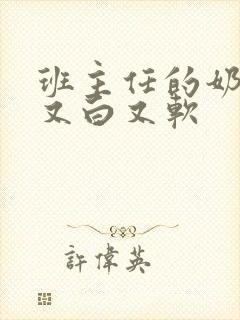 班主任的奶
又白又軟
許偉英